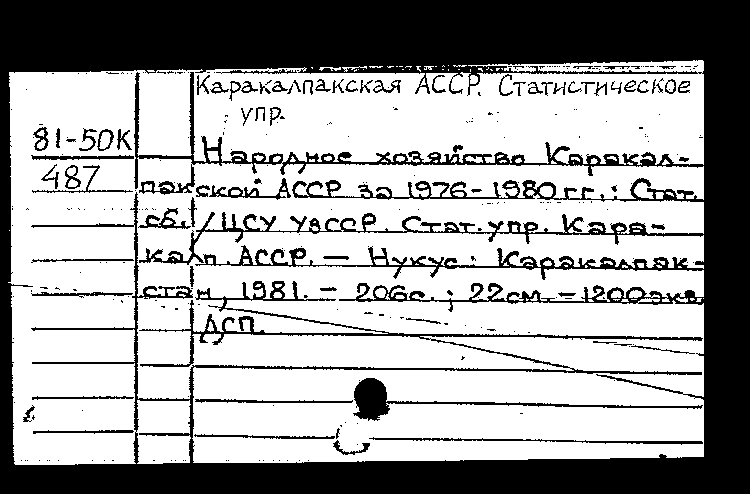 Каракалпакская АССР. Статистическое
упр.
81-50К
Народное хозяйство Каракал-
487
пакской АССР за 1976-1980 гг.: Стат.
сб. / ЦСУ УзССР. Стат. упр. Кара-
калп. АССР. — Нукус: Каракалпак-
стан, 1981. - 206с.; 22см. - 1200экз.
ДСП.